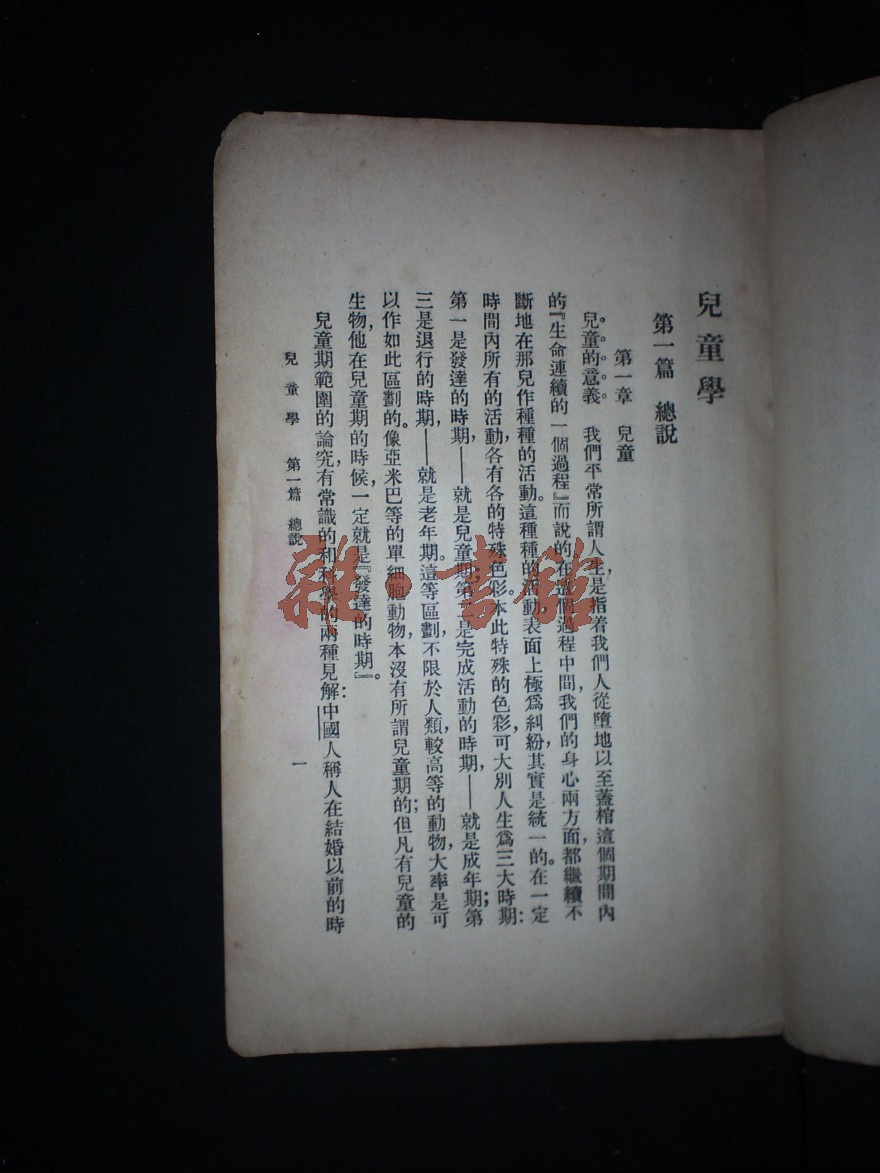 兒童學
第一篇 總說
第一章 兒童
兒童的意義 我們平常所謂人生,是指着我們人從墮地以至蓋棺這個期間內
的『生命連續的一個過程』而說的在這個過程中間,我們的身心兩方面都繼續不
斷地在那兒作種種的活動。這種種的活動,表面上極爲糾紛,其實是統一的。在一定
時間內所有的活動,各有各的特殊色彩。本此特殊的色彩,可大別人生爲三大時期:
第一是發達的時期,——就是兒童期;第二是完成活動的時期,——就是成年期;第
三是退行的時期,——就是老年期。這等區劃,不限於人類,較高等的動物,大率是可
以作如此區劃的。像亞米巴等的單細胞動物,本沒有所謂兒童期的;但凡有兒童的
生物,他在兒童期的時候,一定就是『發達的時期』。
兒童期範圍的論究,有常識的和科學的兩種見解:中國人稱人在結婚以前的時
兒童學 第一篇 總說
一
雜·書館